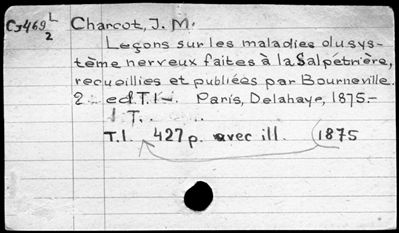 G469 L/2 Charcot, J. M.
Leçons sur les maladies du sys-
tème nerveux faites à la Salpétrière,
recueillies et publiées par Bourneville.
2 ed. T.1-. Paris, Delahaye, 1875.-
1 T.
T.1. 427 p. avec ill. 1875